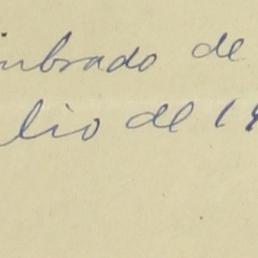 imbrado de
lio de 19